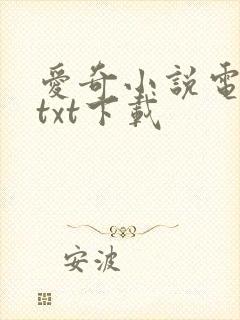 愛奇小說電
txt下載
安波